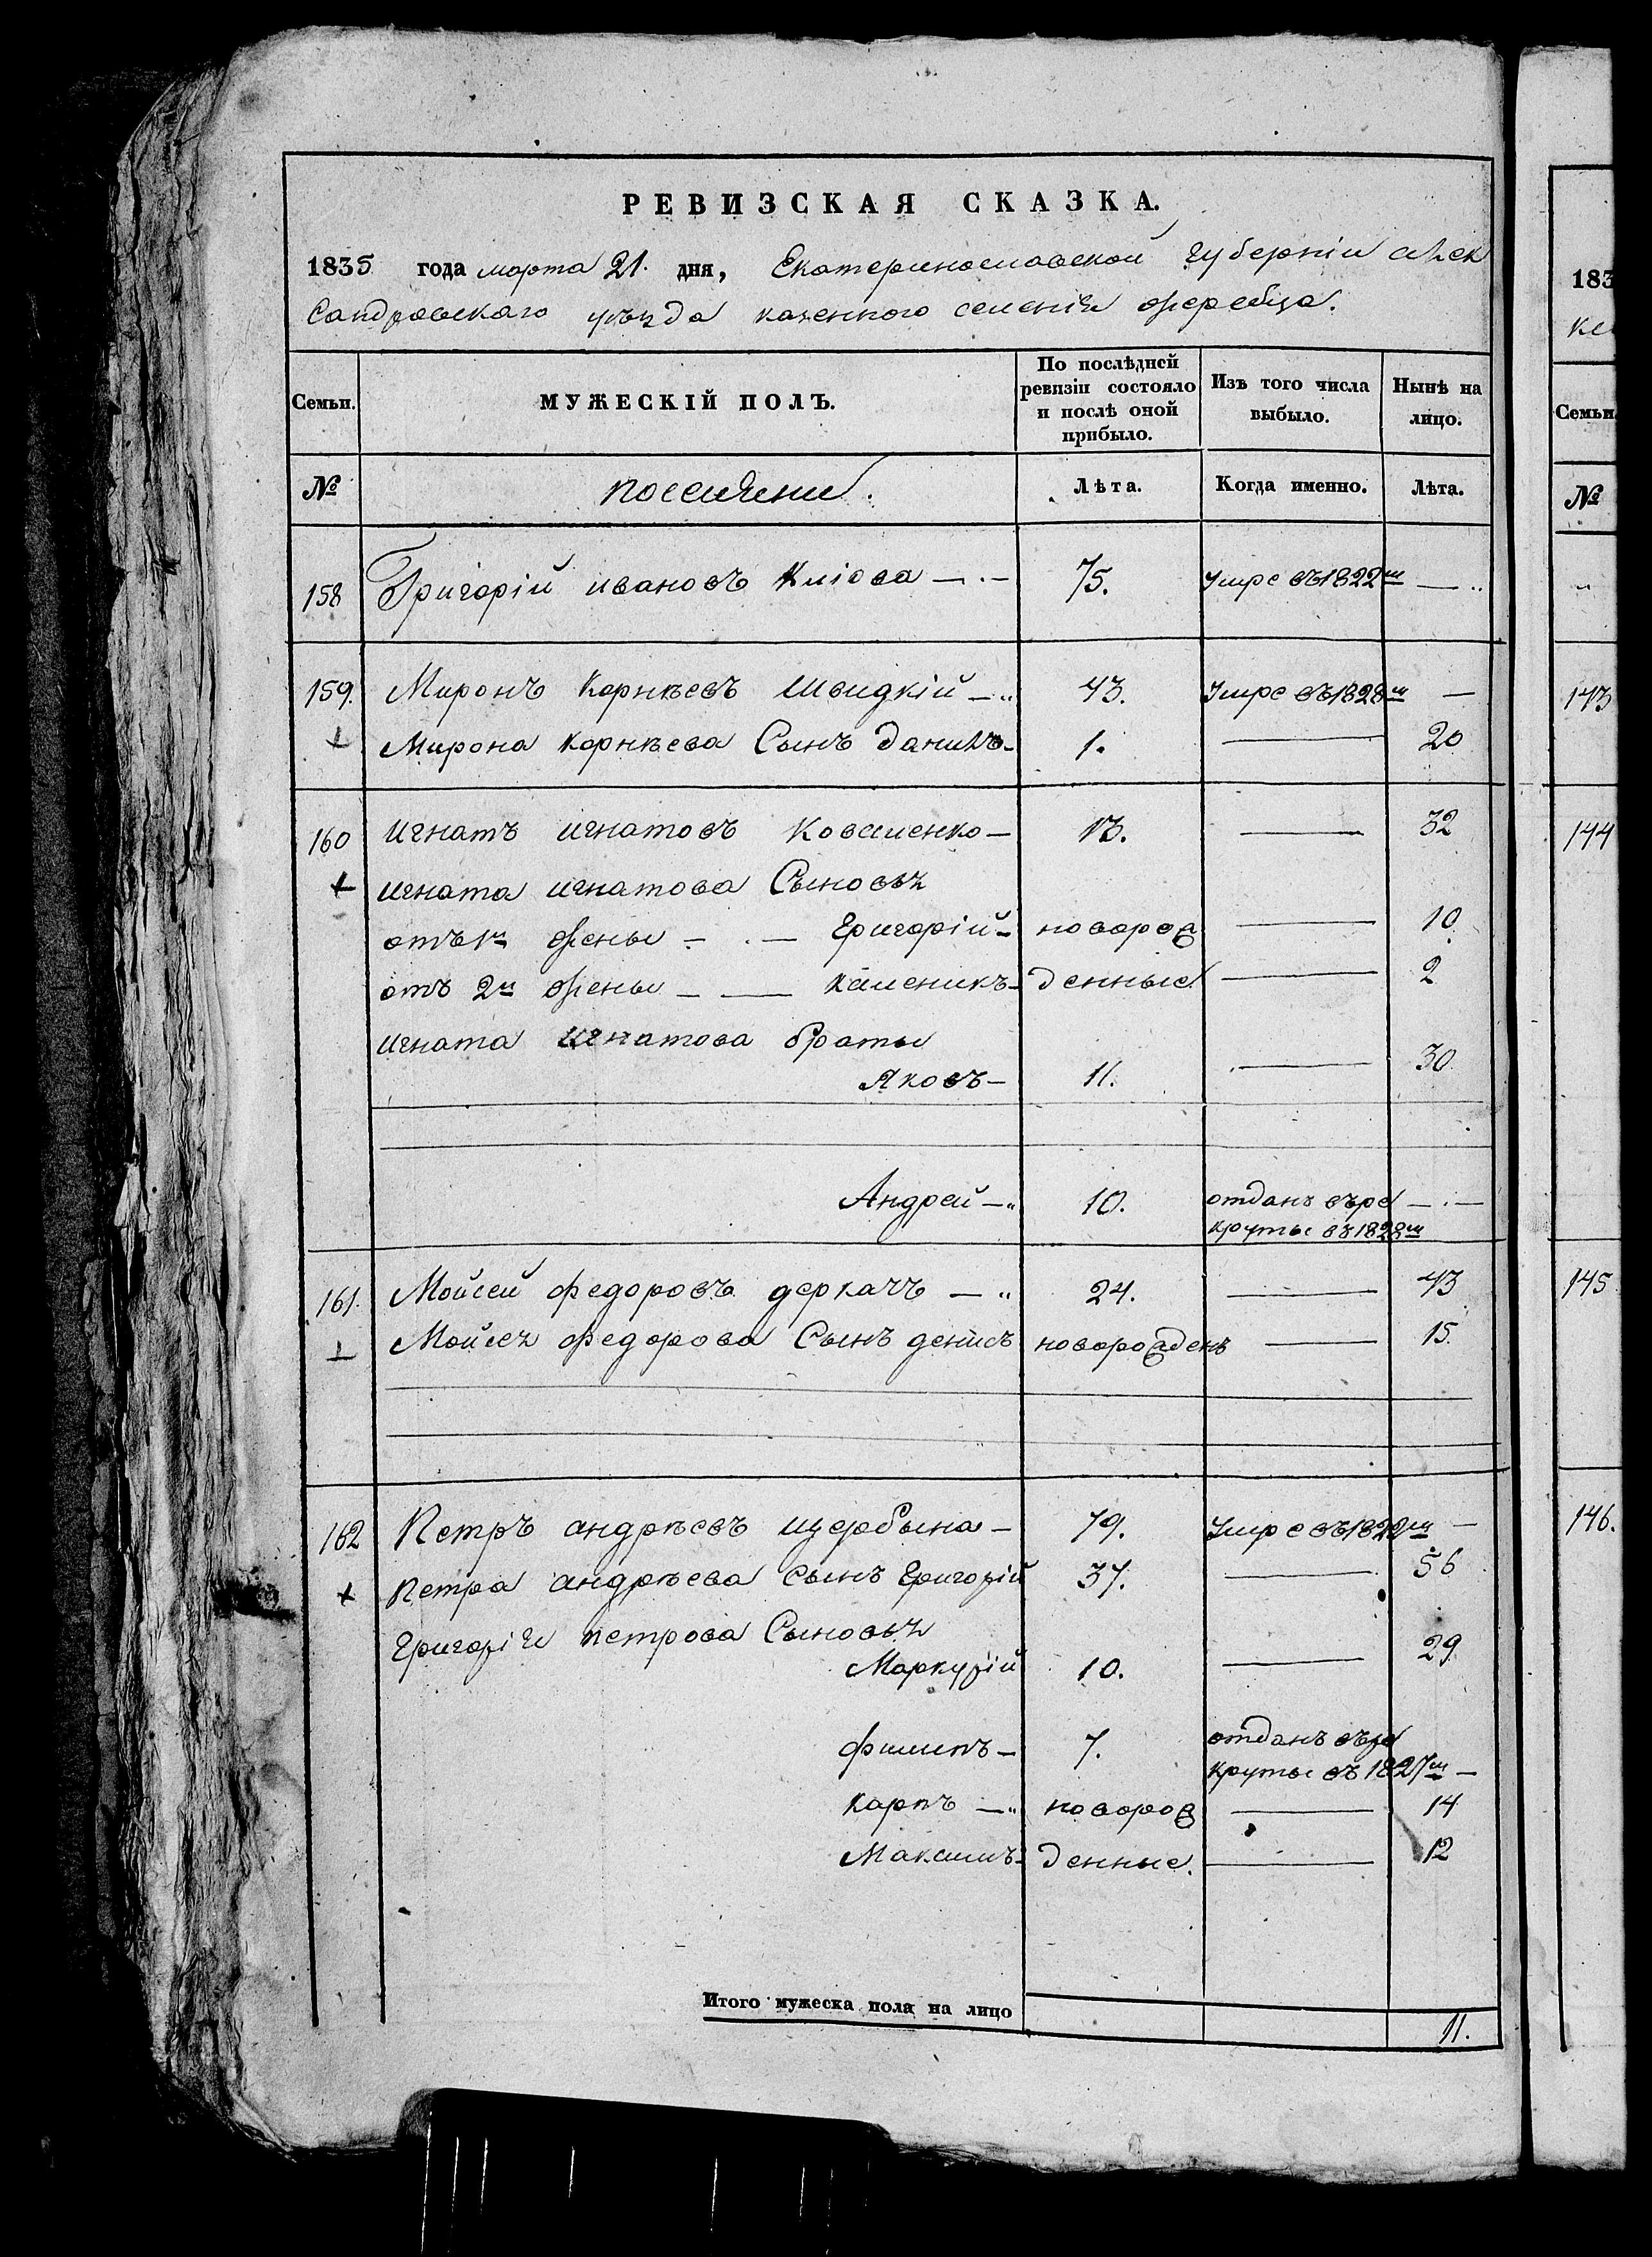 РЕВИЗСКАЯ СКАЗКА.
1835 года марта 21. дня, Екатеринославской губерніи алек
сандровскаго уѣзда казенного селенія жеребца.
Семьи. МУЖЕСКІЙ ПОЛЪ. По послѣдней ревизіи состояло и послѣ оной прибыло. Изъ того числа выбыло. Нынѣ на лицо.
№ поселяни. Лѣта. Когда именно. Лѣта.
158 Григорій ивановъ 75. умре въ 1822м —
159. Миронъ Корнѣевъ Швидкій — 43. умре въ 1828м —
Мирона корнѣева Сынъ данило — 1. — 20
160 игнатъ игнатовъ Коваленко — 13. — 32
игната игнатова Сыновья
отъ 1й жены — Григорій — новорож — 10.
отъ 2й жены — — денные — 2
игната игнатова браты
Яковъ — 11. — 30
Андрей — 10. отданъ въ ре —
круты въ 1828м
161. Мойсей федоровъ деркачъ — 24. — 43
Мойсея федорова Сынъ денисъ новорожденъ — 15.
162 Петръ андрѣевъ щербына — 79. умре въ 1822м —
Петра андрѣева сынъ Григорій 37. — 56
Григорія петрова Сыновья
Маркурій 10. — 29
филипъ — 7. отданъ въ ре
круты въ 1827м —
карпъ — новорож — 14
Максимъ — денные. — 12
Итого мужеска пола на лицо 11.
183
ке
Семьи.
№
143
144
145
146.